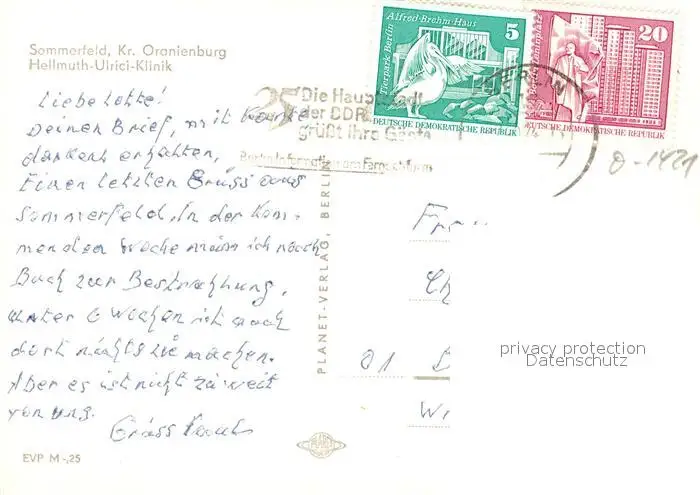 Sommerfeld, Kr. Oranienburg
Hellmuth-Ulrici-Klinik
Alfred-Brehm-Haus
Tierpark Berlin
5
20
DEUTSCHE DEMOKRATISCHE REPUBLIK
DEUTSCHE DEMOKRATISCHE REPUBLIK
BERLIN
25
Die Hauptstadt
der DDR
grüßt ihre Gäste
Berlin-Information am Fernsehturm
0-1421
Liebe Lotte!
Deinen Brief, mit Karte
dankend erhalten,
Einen letzten Gruss aus
Sommerfeld. In der kom-
menden Woche muss ich nach
Buch zur Bestrahlung,
unter 6 Wochen ist auch
dort nichts zu machen.
Aber es ist nicht zu weit
von uns.
Gruss
PLANET-VERLAG, BERLIN
Fr
Ch
01
W
PLANET
EVP M -,25
privacy protection
Datenschutz